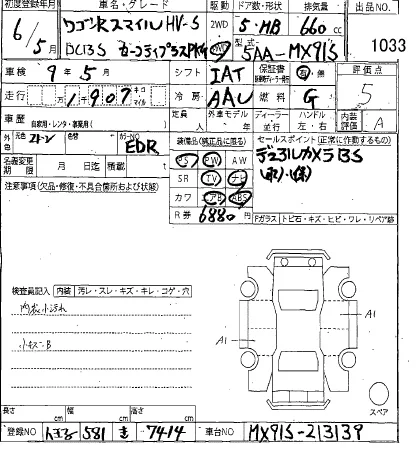 初度登録年月 車名・グレード 駆動 ドア数・形状 排気量 出品NO.
6/5月 ワゴンRスマイル HV-S 2WD 5・HB 660cc
4WD 型式 5AA-MX91S 1033
車検 9年5月 シフト IAT 保証書 有・無 評価点
走行 1千907 キロ マイル 冷房 AAU 燃料 G 5
車歴 自家用・レンタ・事業用( ) 定員 人 外車モデル 年 ディーラー・並行 ハンドル 左・右 内装評価 A
外色 2トーン 色替 カラーNO EDR 装備品(純正品に限る) セールスポイント(正常に作動するもの)
名義変更期限 月 日迄 積載 t PS PW AW デュアルカメラBS
注意事項(欠品・修復・不具合箇所および状態) SR TV ナビ (取)・(保)
カワ エアB ABS
R券 6880円 Fガラス トビ石・キズ・ヒビ・ワレ・リペア跡
検査員記入 内装 汚レ・スレ・キズ・キレ・コゲ・穴
内装小汚れ
小キズ・B
A1
A1
スペア
長さ cm 幅 cm 高さ cm
登録NO 581 き 7414 車台NO MX91S-213139